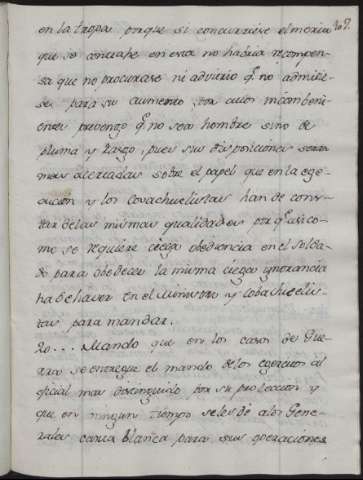 en la tropa porque si concurriese el merito 209.
que se contrahe en esta no habria recompen
sa que no procurase ni advitrio q.e no admitie
se para su aumento por cuios incombeni
entes prevengo q.e no sea hombre sino de
pluma y rasgo, pues sus disposiciones seran
mas acertadas sobre el papel que en la ege
cucion y los Covachuelistas han de cons
tar de las mismas qualidades porq.e asi co
mo se requiere ciega obediencia en el Solda
do para obedecer la misma ciega ygnorancia
ha de haver en el Ministro y Cobachuelis
tas para mandar.
20... Mando que en los casos de Gue
rra se entregue el mando de los egercitos al
oficial mas distinguido por su proteccion y
que en ningun tiempo se les dé a los Gene
rales carta blanca para sus operaciones